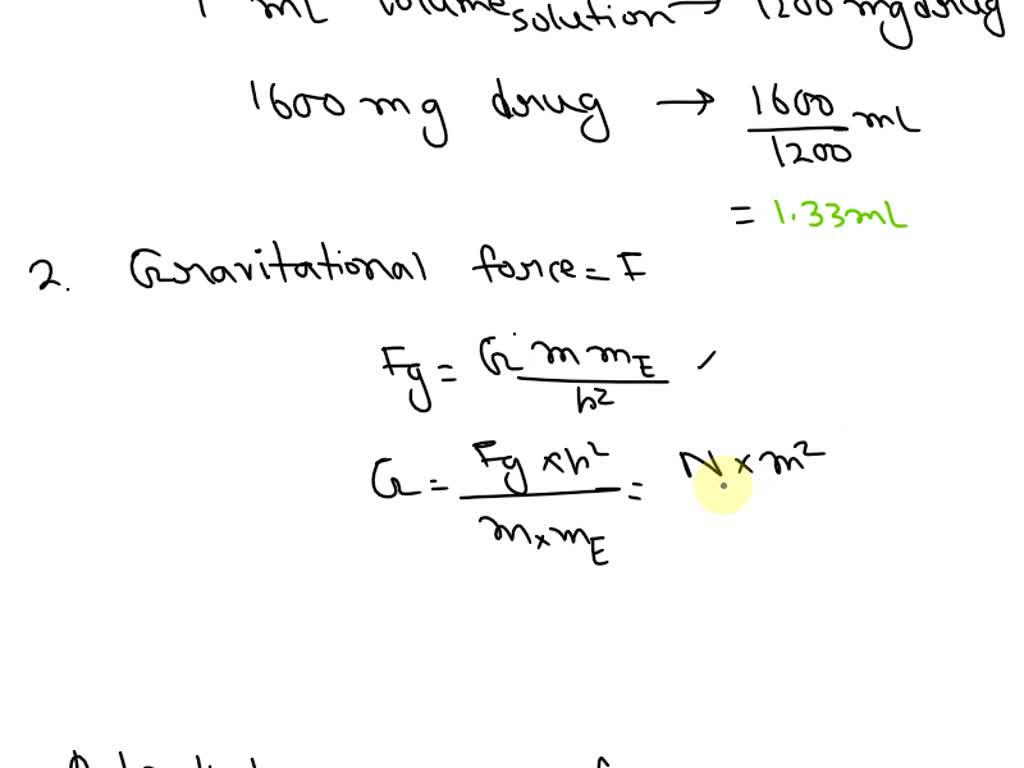 1 mL volume solution → 1200 mg drug
1600 mg drug → 1600/1200 mL
= 1.33mL
2. Gravitational force = F
Fg = G m mE / h²
G = Fg × h² / m × mE = N × m²